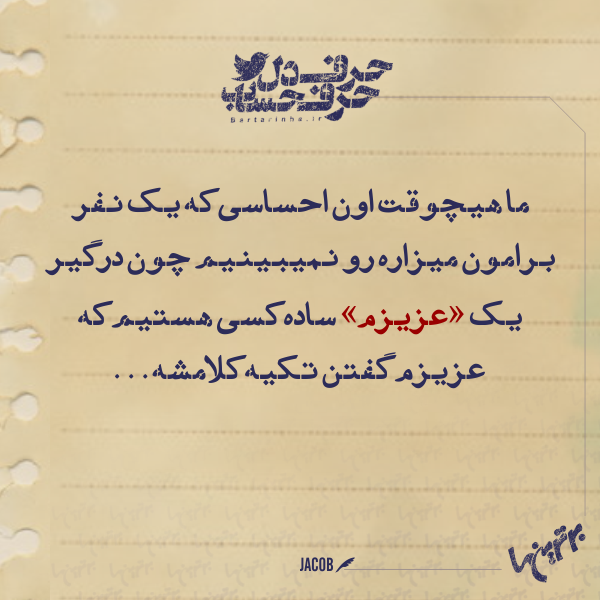 حرف دل
حرف حساب
Bartarinha.ir
ما هیچوقت اون احساسی که یک نفر
برامون میزاره رو نمیبینیم چون درگیر
یک «عزیزم» ساده کسی هستیم که
عزیزم گفتن تکیه کلامشه...
JACOB
برترین‌ها